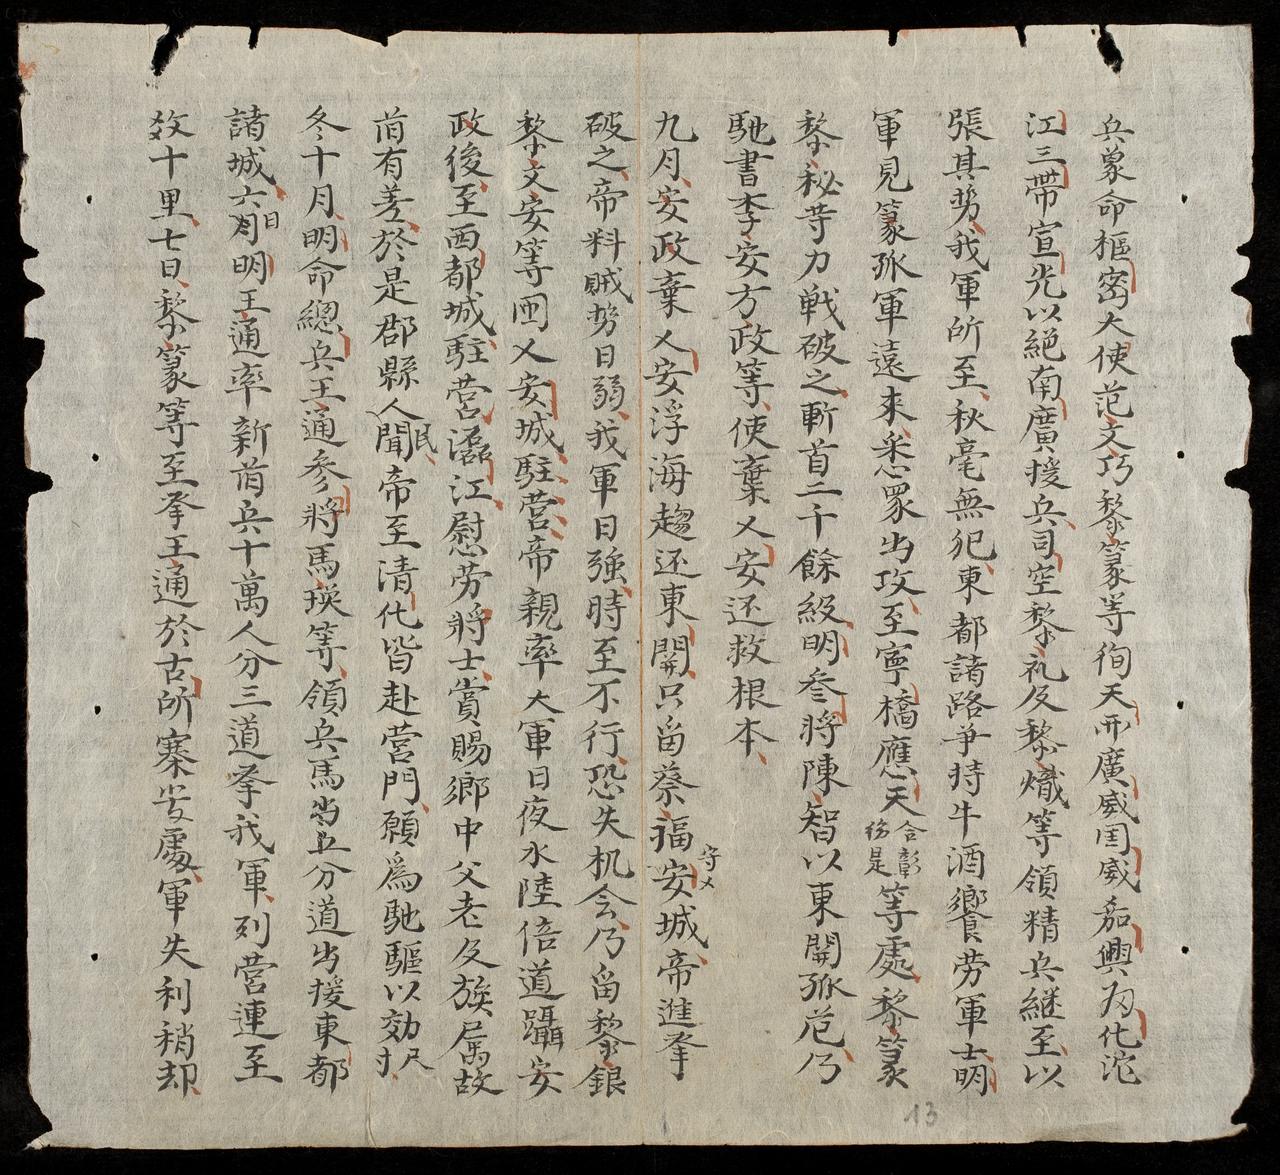 兵象命樞密大使范文巧黎篆等徇天𢒎廣威囯威嘉興歸化沱
江三帶宣光以絕南廣援兵司空黎礼及黎熾等領精兵継至以
張其势我軍所至秋毫無犯東都諸路爭持牛酒饗劳軍士明
軍見篆孤軍遠來悉眾出攻至寧橋應天合彰後是等處黎篆
黎秘等力戰破之斬首二千餘級明叄將陳智以東關孤危乃
馳書李安方政等使棄乂安还救根本
九月安政棄乂安浮海趨还東關只留蔡福守乂安城帝進攻
破之帝料賊势日弱我軍日強時至不行恐失机会乃留黎銀
黎文安等囲乂安城駐营帝親率大軍日夜水陸倍道躡安
政後至西都城駐营㵢江慰劳將士賞賜鄉中父老及族属故
旧有差於是郡縣人民聞帝至清化皆赴营門願為馳驅以効尺寸
冬十月明命總兵王通參將馬瑛等領兵馬出五分道出援東都
諸城六日明王通率新旧兵十萬人分三道攻我軍列营連至
数十里七日黎篆等至攻王通於古所寨安處軍失利稍却
13